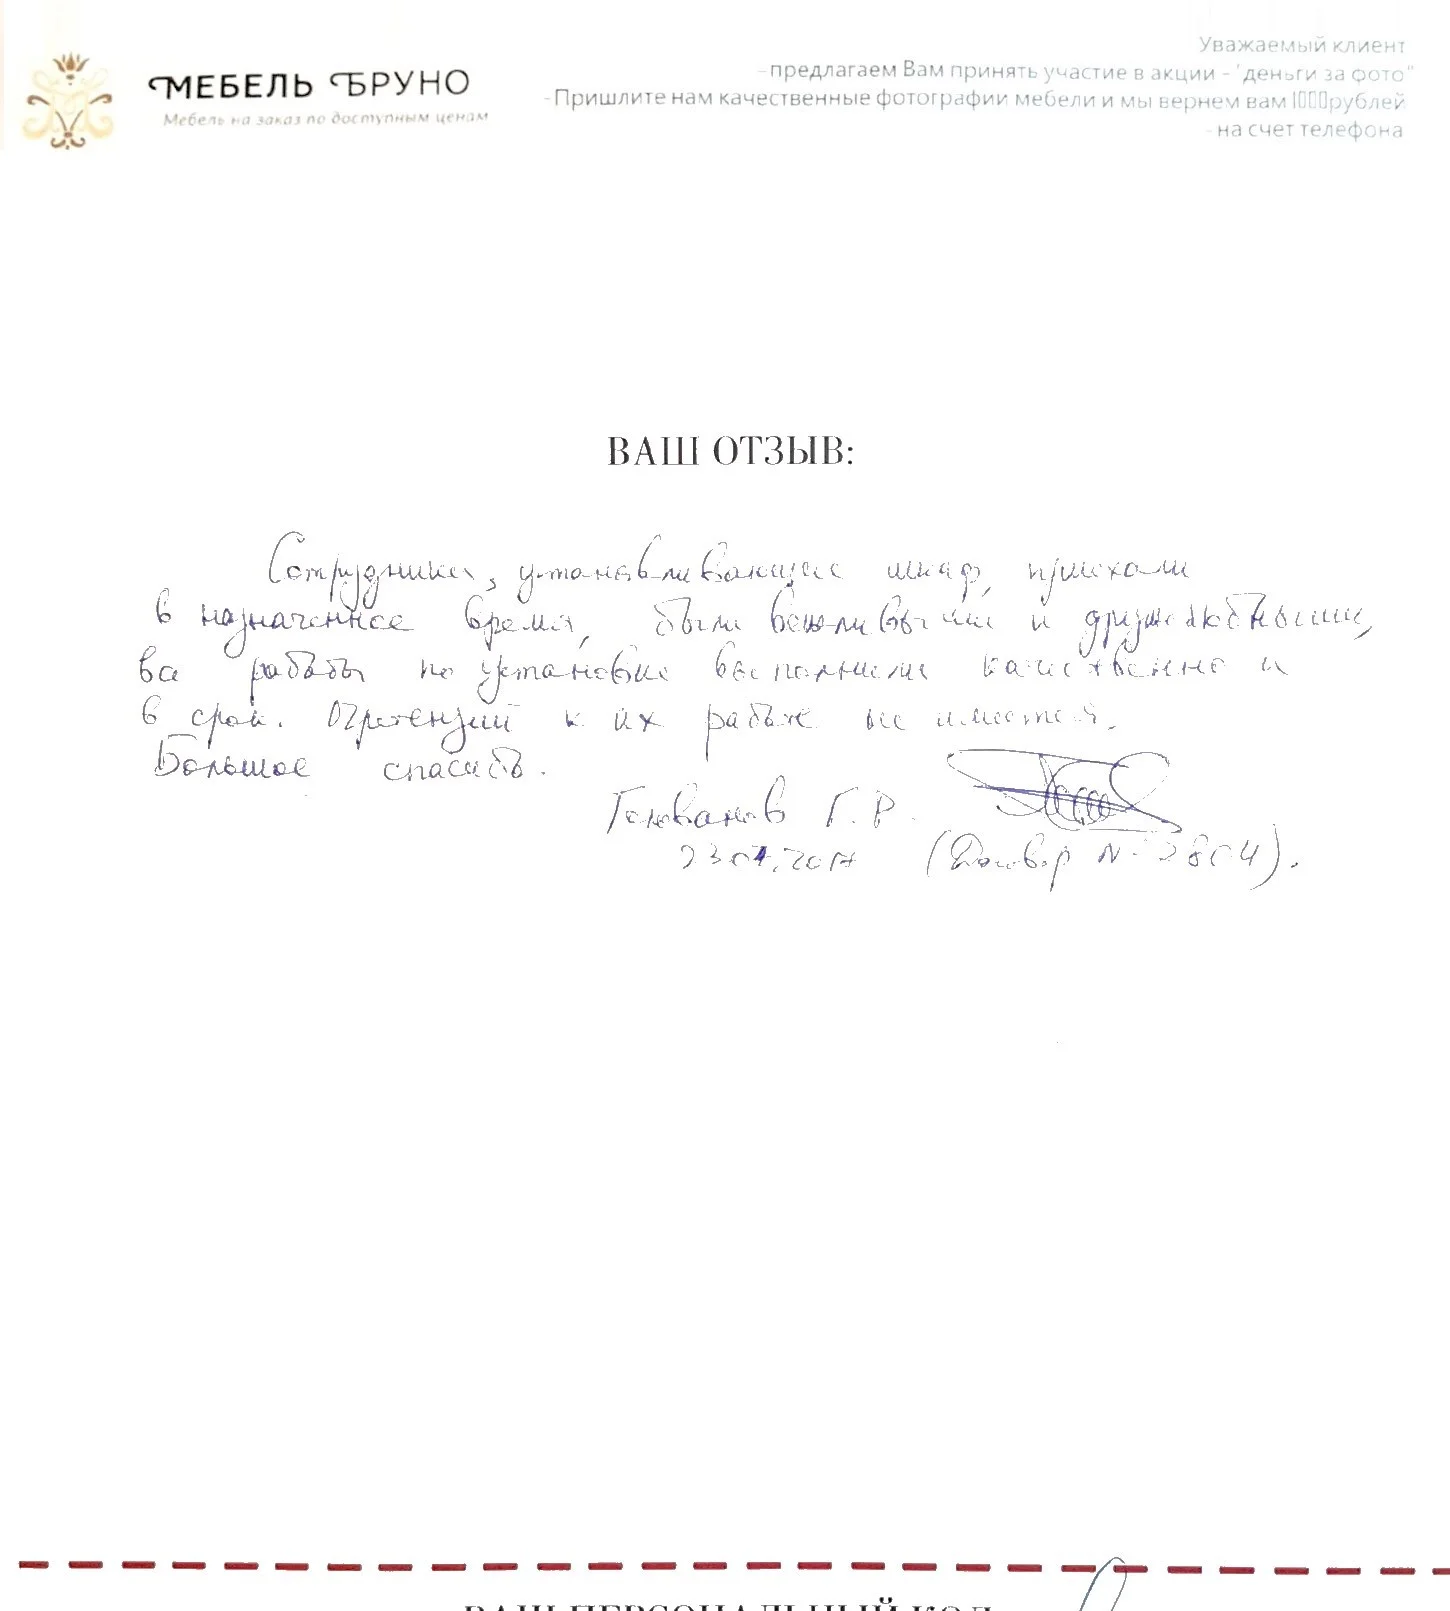 МЕБЕЛЬ БРУНО
Мебель на заказ по доступным ценам
Уважаемый клиент
-предлагаем Вам принять участие в акции - "деньги за фото"
-Пришлите нам качественные фотографии мебели и мы вернем вам 1000рублей
-на счет телефона
ВАШ ОТЗЫВ:
Сотрудники, устанавливающие шкаф, приехали
в назначенное время, были вежливыми и дружелюбными,
все работы по установке выполнили качественно и
в срок. Претензий к их работе не имеется.
Большое спасибо.
Голованов Г.Р.
23.07.2017 (Договор № 2804).
ВАШ ПЕРСОНАЛЬНЫЙ КОД